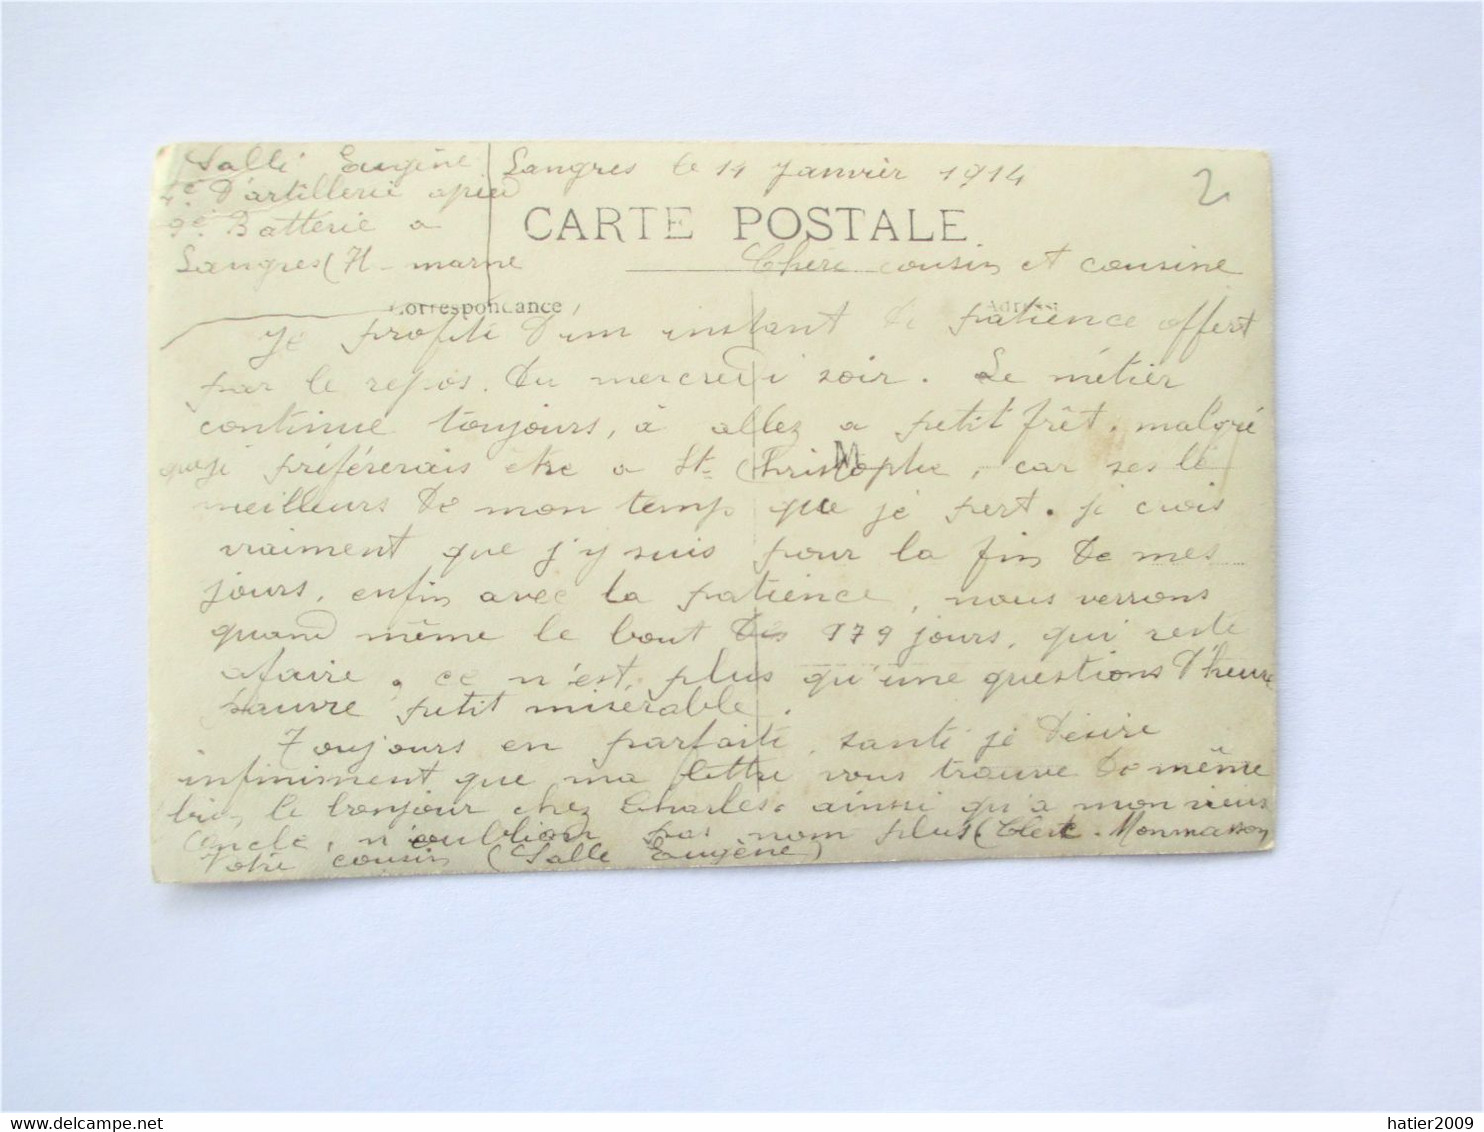 Sallé Eugène
4e D'artillerie apied
9e Batterie a
Langres (H-marne
Langres le 14 Janvier 1914
2
CARTE POSTALE
Chere cousin et cousine
Correspondance
Adresse
Je profite d'un instant de patience offert
par le repos. Du mercredi soir. Le métier
continue toujours, à allez a petit frêt. malgré
que je préfèrerais etre a St. Christophe, car ses le
meilleurs de mon temp que je pert. je crois
vraiment que j'y suis pour la fin de mes
jours, enfin avec la patience, nous verrons
quand même le bout des 979 jours, qui reste
afaire. ce n'est, plus qu'une questions d'heure
pauvre petit miserable.
Toujours en parfaite santé je désire
infiniment que ma lettre vous trouve de même
bien, le bonjour chez Charles. ainsi qu'a mon vieux
oncle, n'oublion pas nom plus (Clerc-Monmasson
Votre cousin (Salle Eugène)
hatier2009